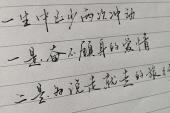 一生中至少两次冲动
一是奋不顾身的爱情
二是说走就走的旅